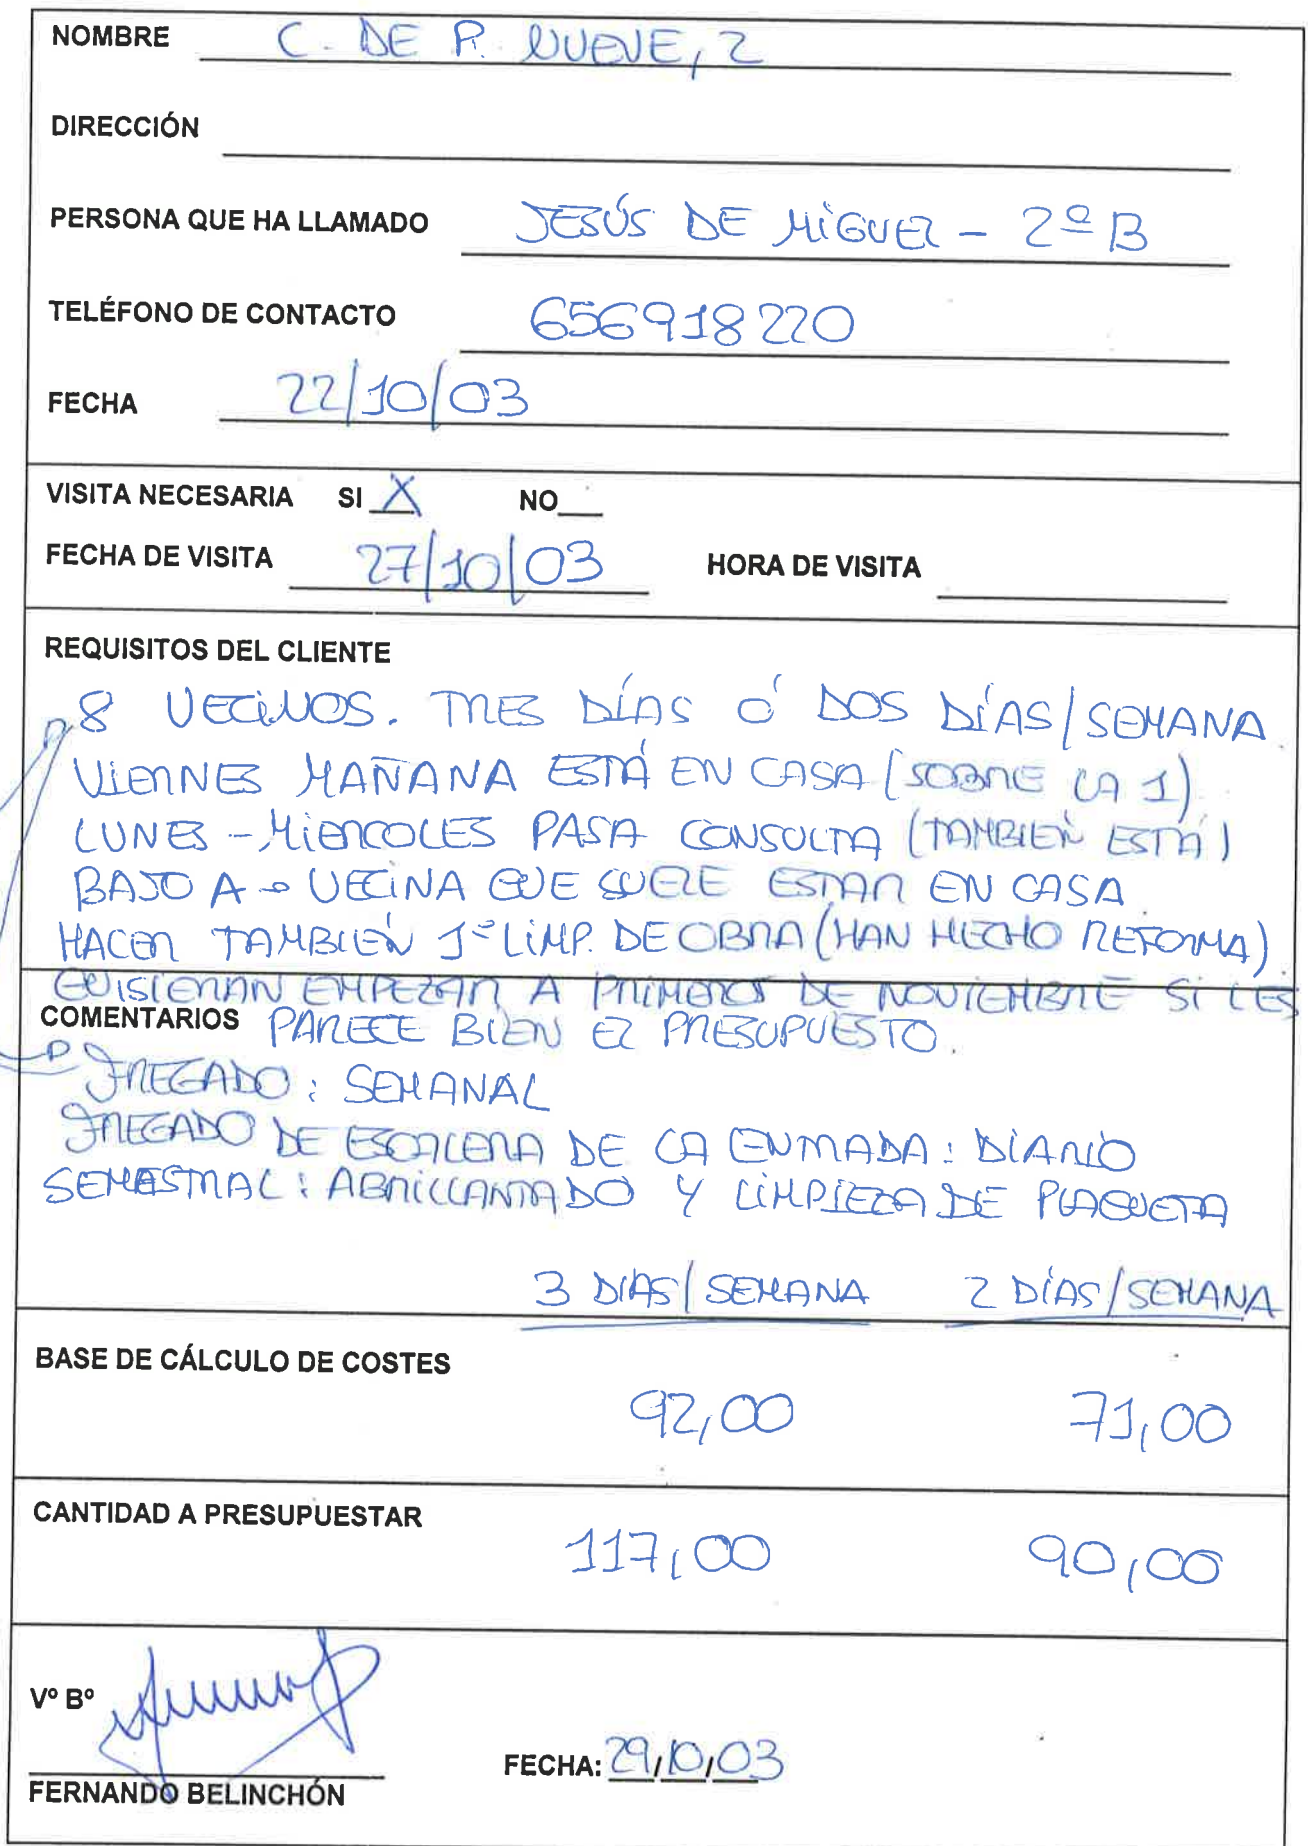 NOMBRE C. DE P. NUEVE, 2
DIRECCIÓN
PERSONA QUE HA LLAMADO JESÚS DE MIGUEL - 2º B
TELÉFONO DE CONTACTO 656918220
FECHA 22/10/03
VISITA NECESARIA SI X NO
FECHA DE VISITA 27/10/03 HORA DE VISITA
REQUISITOS DEL CLIENTE
8 VECINOS. TRES DÍAS Ó DOS DÍAS/SEMANA
VIERNES MAÑANA ESTÁ EN CASA (SOBRE LA 1)
LUNES - MIERCOLES PASA CONSULTA (TAMBIEN ESTÁ)
BAJO A → VECINA QUE SUELE ESTAR EN CASA
HACER TAMBIÉN 1ª LIMP. DE OBRA (HAN HECHO REFORMA)
QUISIERAN EMPEZAR A PRIMEROS DE NOVIEMBRE SI LES
COMENTARIOS PARECE BIEN EL PRESUPUESTO.
FREGADO: SEMANAL
FREGADO DE ESCALERA DE LA ENTRADA: DIARIO
SEMESTRAL: ABRILLANTADO Y LIMPIEZA DE PLAQUETA
3 DIAS/SEMANA 2 DÍAS/SEMANA
BASE DE CÁLCULO DE COSTES
92,00 71,00
CANTIDAD A PRESUPUESTAR
117,00 90,00
Vº Bº
FECHA: 29/10/03
FERNANDO BELINCHÓN